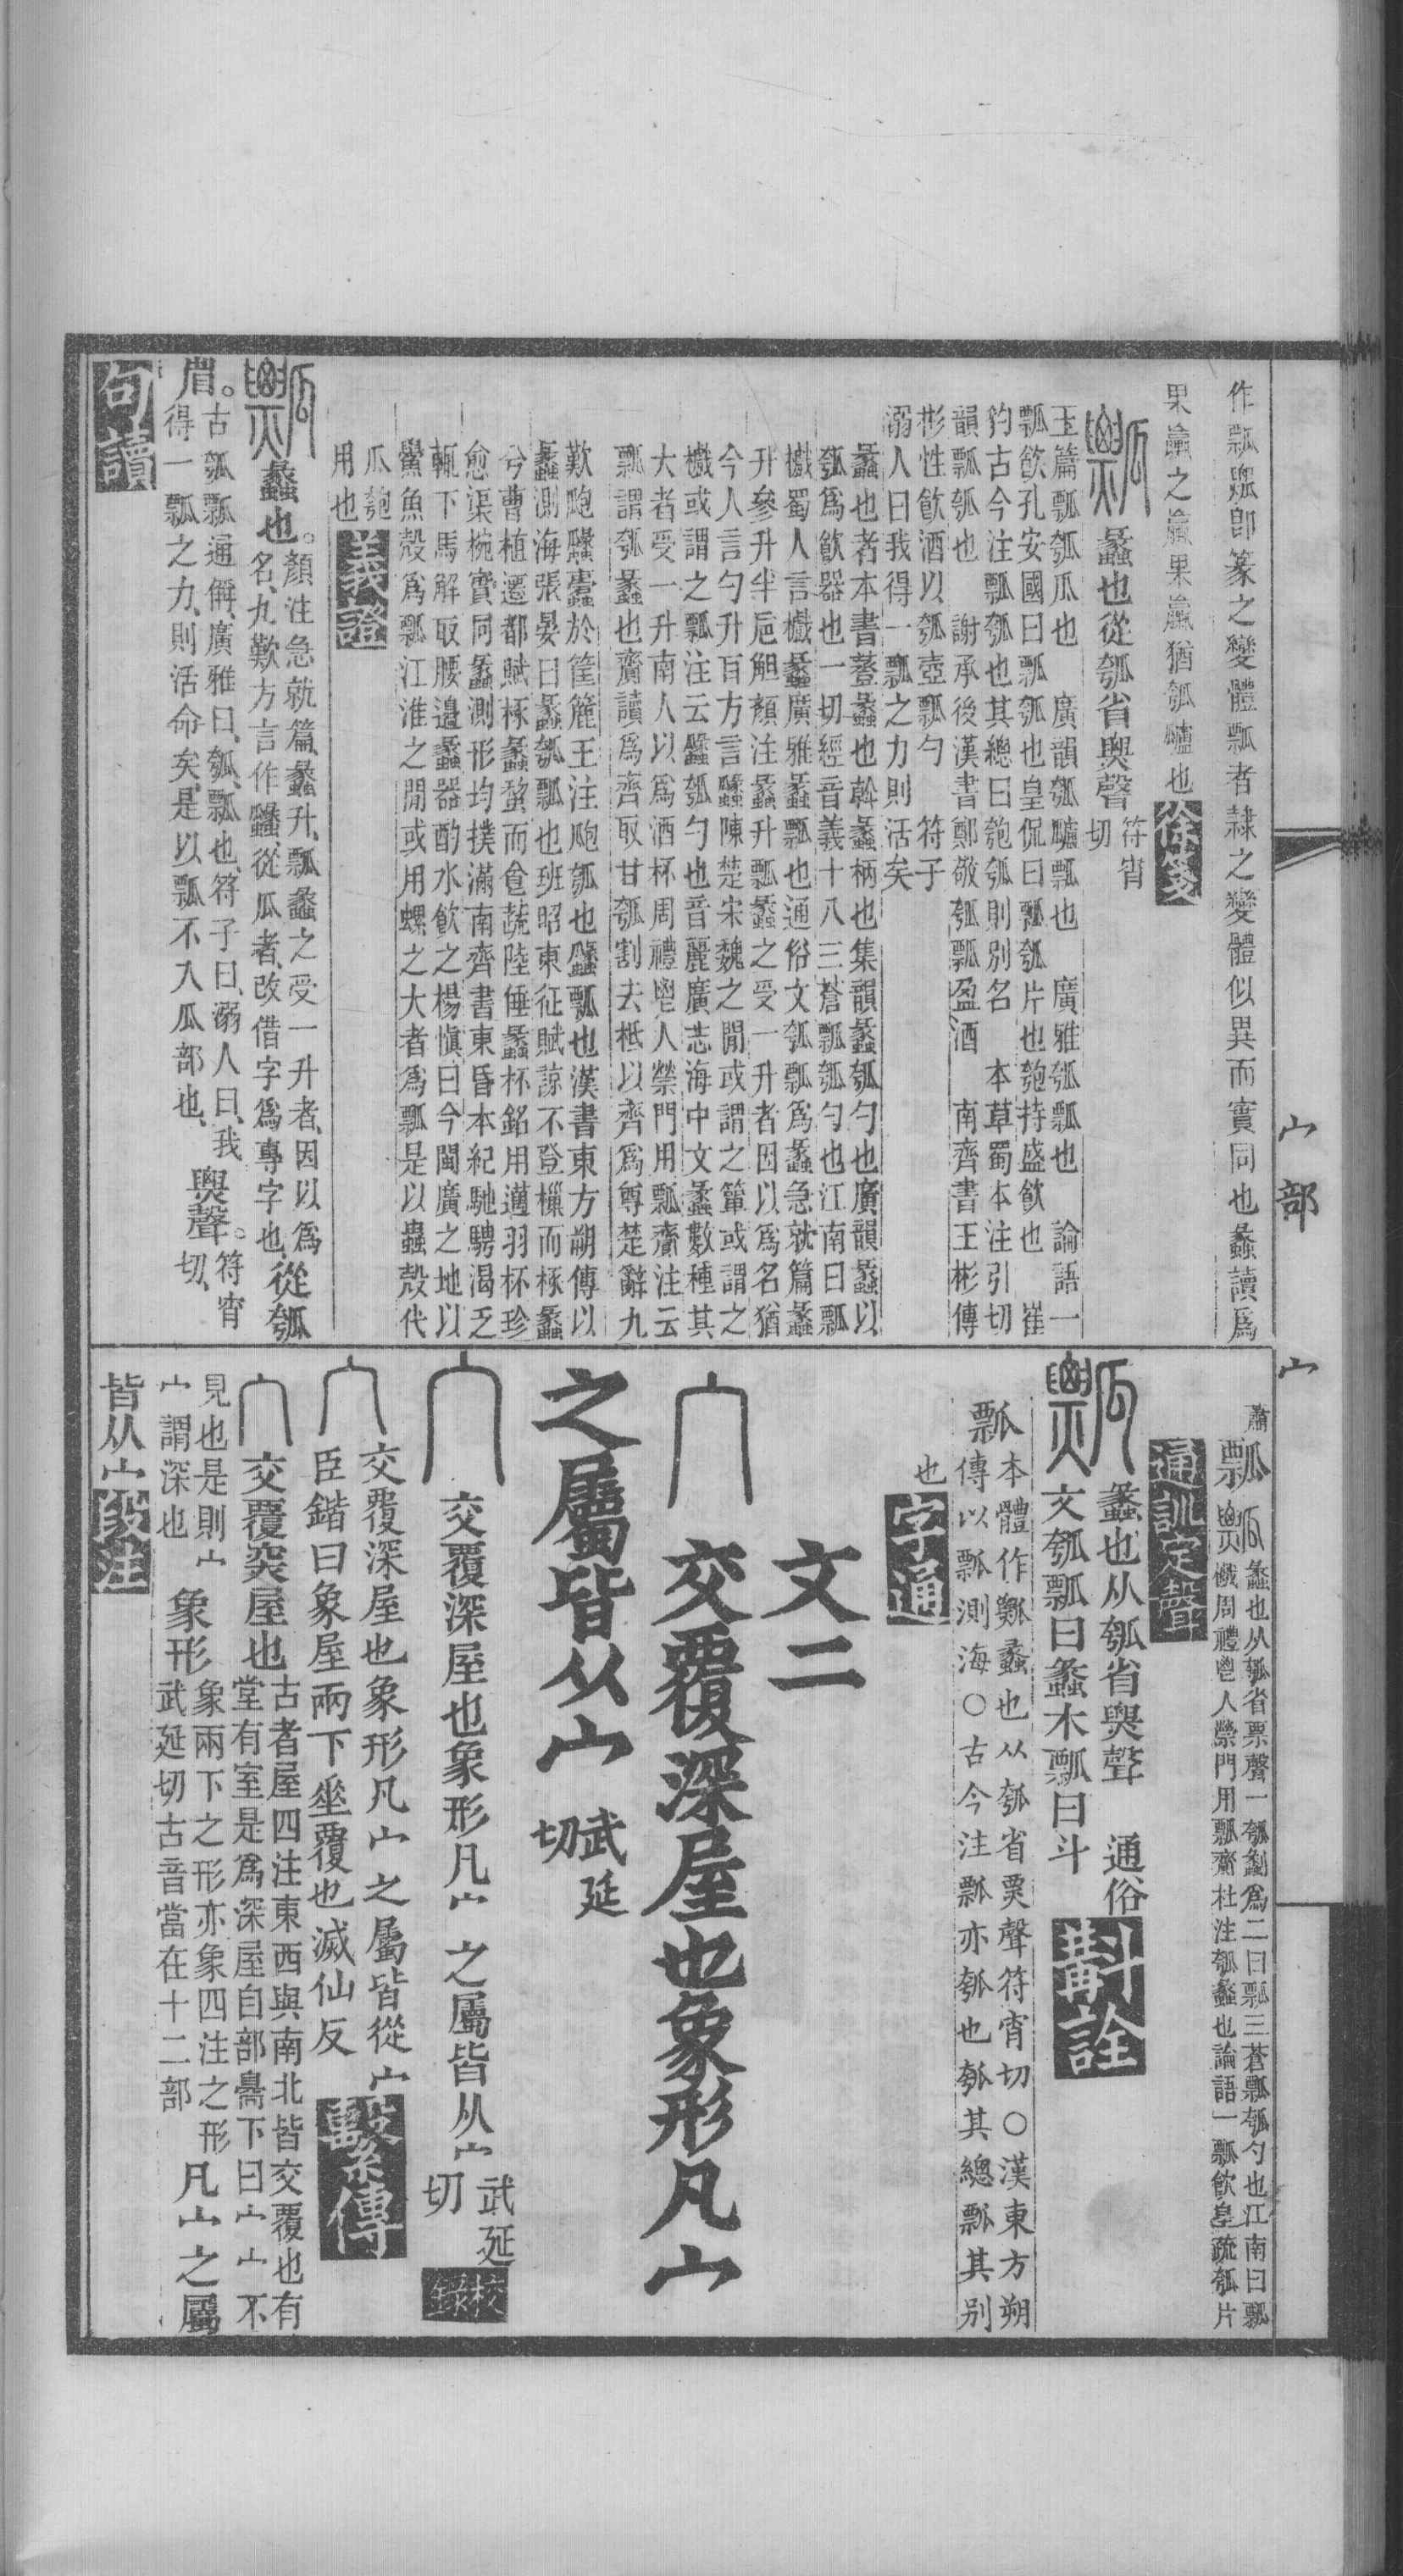 作瓢㼼卽篆之變體瓢者隸之變體似異而實同也蠡讀爲
果蠃之蠃果蠃猶瓠㼖也徐箋
蠡也從瓠省㶾聲符宵切
玉篇瓢瓠瓜也　廣韻瓠㼖瓢也　廣雅瓠瓢也　論語一
瓢飮孔安國曰瓢瓠也皇侃曰瓢瓠片也匏持盛飮也　崔
豹古今注瓢瓠也其總曰匏瓠則別名　本草蜀本注引切
韻瓢瓠也　謝承後漢書鄭敬瓠瓢盈酒　南齊書王彬傳
彬性飮酒以瓠壺瓢勺　符子
溺人曰我得一瓢之力則活矣
蠡也者本書䕫蠡也斡蠡柄也集韻蠡瓠勺也廣韻蠡以
瓠爲飮器也一切經音義十八三蒼瓢瓠勺也江南曰瓢
㰕蜀人言㰕蠡廣雅蠡瓢也通俗文瓠瓢爲蠡急就篇蠡
升參升半巵觛顏注蠡升瓢蠡之受一升者因以爲名猶
今人言勺升百方言㼖陳楚宋魏之閒或謂之簞或謂之
㰕或謂之瓢注云㼖瓠勺也音麗廣志海中文蠡數種其
大者受一升南人以爲酒杯周禮鬯人禜門用瓢齎注云
瓢謂瓠蠡也齎讀爲齊取甘瓠割去柢以齊爲尊楚辭九
歎瓟㼖蠹於筐簏王注瓟瓠也㼖瓢也漢書東方朔傳以
蠡測海張晏曰蠡瓠瓢也班昭東征賦諒不登樔而椓蠡
兮曹植遷都賦椓蠡蛖而食蔬陸倕蠡杯銘用邁羽杯珍
愈渠椀實同蠡測形均撲滿南齊書東昏本紀馳騁渴乏
輒下馬解取腰邊蠡器酌水飮之楊愼曰今閩廣之地以
鱟魚殼爲瓢江淮之閒或用螺之大者爲瓢是以蟲殼代
瓜匏
用也義證
蠡也。顏注急就篇、蠡升、瓢蠡之受一升者、因以爲
名、九歎方言作㼖、從瓜者、改借字爲專字也、從瓠
省。古瓠瓢通偁、廣雅曰、瓠、瓢也、符子曰、溺人曰、我
得一瓢之力、則活命矣、是以瓢不入瓜部也、㶾聲。符宵切、
句讀
宀部
宀
蕭
瓢　蠡也从瓠省票聲一瓠劙爲二曰瓢三蒼瓢瓠勺也江南曰瓢
㰕周禮鬯人禜門用瓢齎杜注瓠蠡也論語一瓢飮皇疏瓠片
通訓定聲
蠡也从瓠省㶾聲　通俗
文瓠瓢曰蠡木瓢曰斗斠詮
瓢　本體作瓢蠡也从瓠省㶾聲符宵切○漢東方朔
傳以瓢測海○古今注瓢亦瓠也瓠其總瓢其別
也字通
文二
交覆深屋也象形凡宀
之屬皆从宀武延切
交覆深屋也象形凡宀之屬皆从宀武延切校錄
交覆深屋也象形凡宀之屬皆從宀
臣鍇曰象屋兩下垂覆也滅仙反繫傳
交覆突屋也古者屋四注東西與南北皆交覆也有
堂有室是爲深屋自部臱下曰宀宀不
見也是則宀
宀謂深也象形象兩下之形亦象四注之形
武延切古音當在十二部凡宀之屬
皆从宀段注